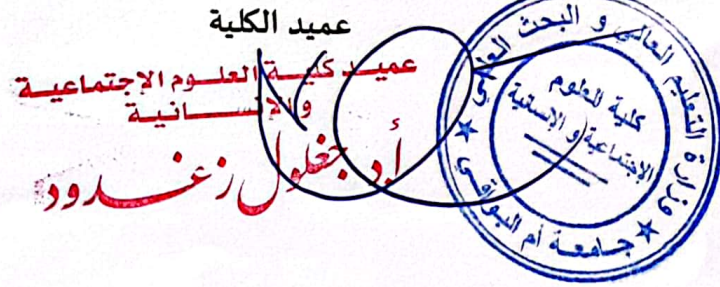 عميد الكلية
عميد كلية العلوم الإجتماعية
و الإنسانية
أ.د جغلول زغدود
وزارة التعليم العالي و البحث العلمي
جامعة أم البواقي
كلية العلوم
الإجتماعية و الإنسانية